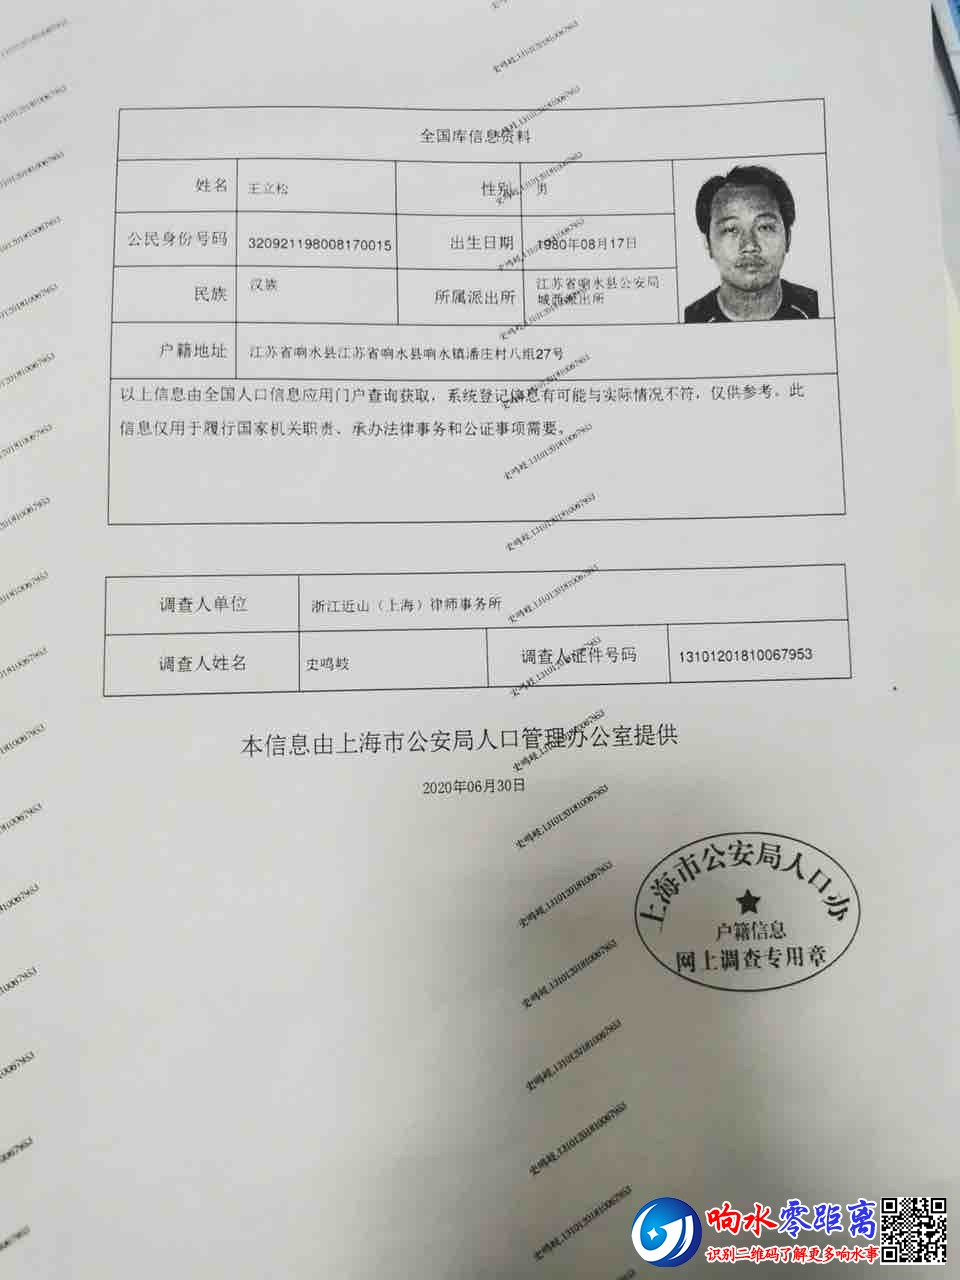 全国库信息资料
姓名 王立松 性别 男
公民身份号码 320921198008170015 出生日期 1980年08月17日
民族 汉族 所属派出所 江苏省响水县公安局
城西派出所
户籍地址 江苏省响水县江苏省响水县响水镇潘庄村八组27号
以上信息由全国人口信息应用门户查询获取，系统登记信息有可能与实际情况不符，仅供参考。此
信息仅用于履行国家机关职责、承办法律事务和公证事项需要。
调查人单位 浙江近山（上海）律师事务所
调查人姓名 史鸣岐 调查人证件号码 13101201810067953
本信息由上海市公安局人口管理办公室提供
2020年06月30日
上海市公安局人口办
户籍信息
网上调查专用章
史鸣岐,13101201810067953
响水零距离
识别二维码了解更多响水事